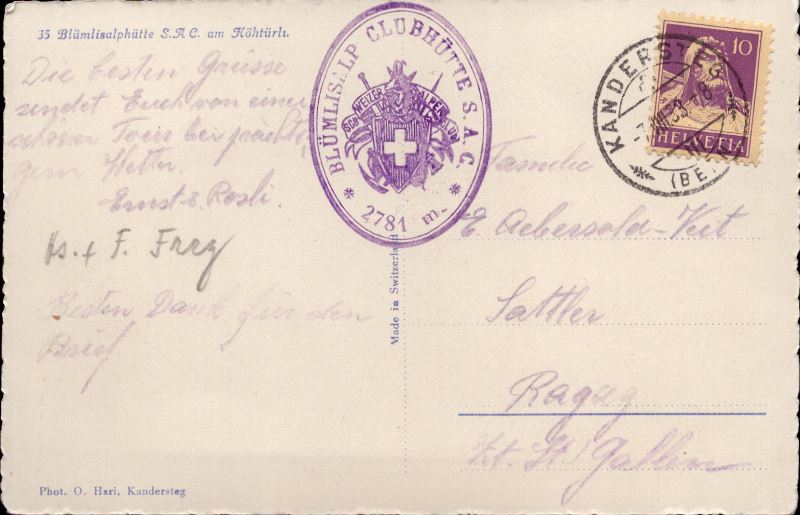 35 Blümlisalphütte S.A.C. am Höhtürli.
Die besten Grüsse
sendet Euch von einer
schöner Tour bei prächti-
gem Wetter.
Ernst & Rosli.
Hs. + F. Frey
Besten Dank für den
Brief.
Phot. O. Hari, Kandersteg
BLÜMLISALP CLUBHÜTTE S.A.C.
SCHWEIZER ALPENCLUB
2781 m.
Made in Switzerland
KANDERSTEG
(BE)
10
HELVETIA
Familie
E. Aebersold-Kut
Sattler
Ragaz
Kt. St. Gallen